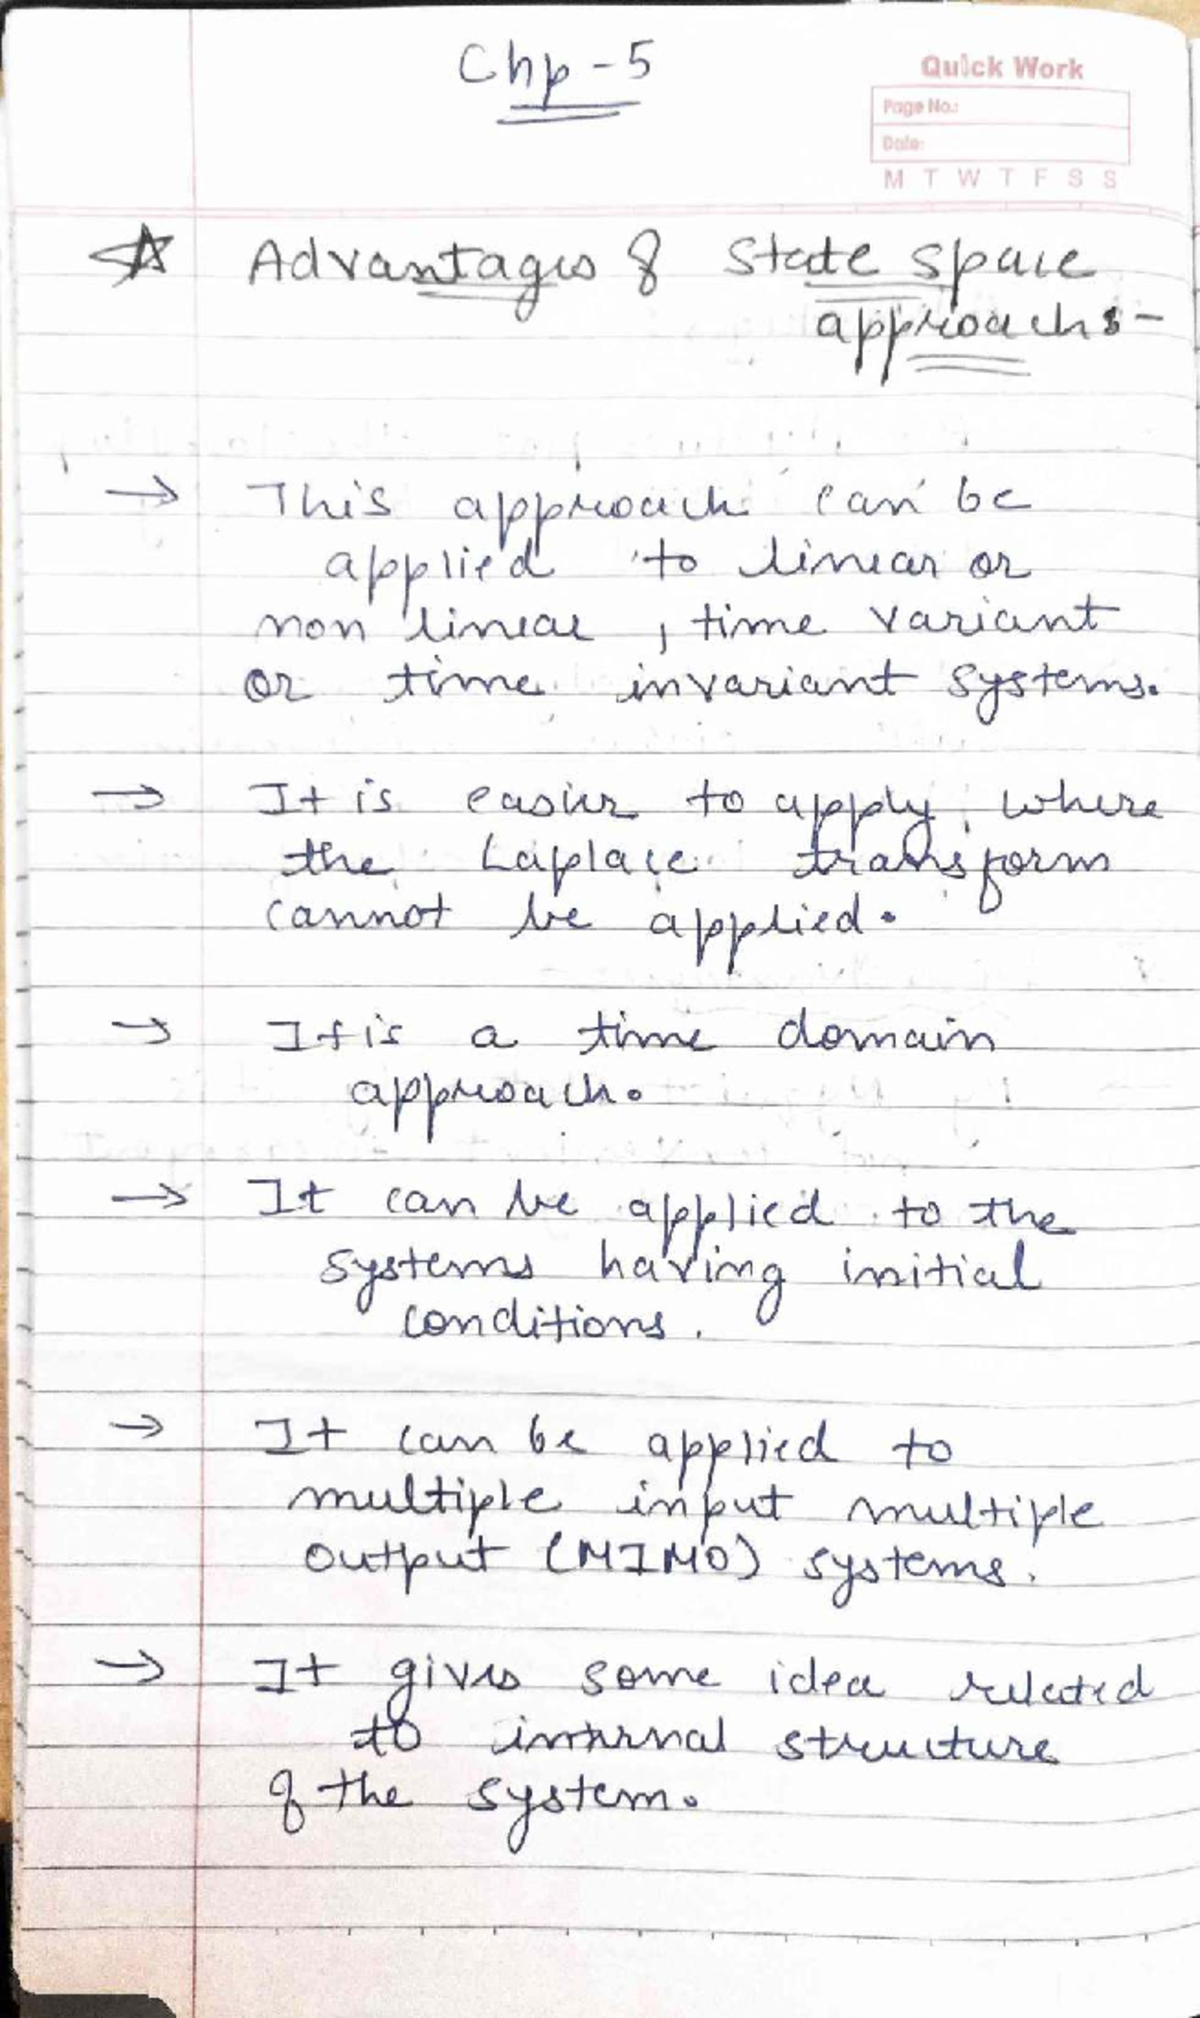 Chp-5
Quick Work
Page No.:
Date:
M T W T F S S
☆ Advantages of State space
approach:-
→ This approach can be
applied to linear or
non linear, time variant
or time invariant systems.
→ It is easier to apply, where
the Laplace transform
cannot be applied.
→ It is a time domain
approach.
→ It can be applied to the
systems having initial
conditions.
→ It can be applied to
multiple input multiple
output (MIMO) systems.
→ It gives some idea related
to internal structure
of the system.